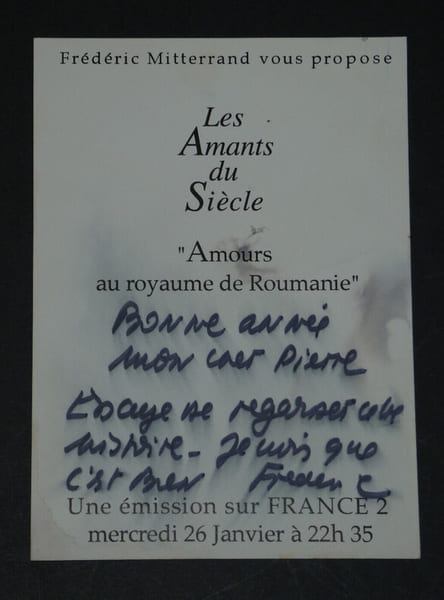 Frédéric Mitterrand vous propose
Les
Amants
du
Siècle
"Amours
au royaume de Roumanie"
Bonne année
mon cher Pierre
Essaye de regarder cette
histoire - Je crois que
c'est bien Frédéric
Une émission sur FRANCE 2
mercredi 26 Janvier à 22h 35